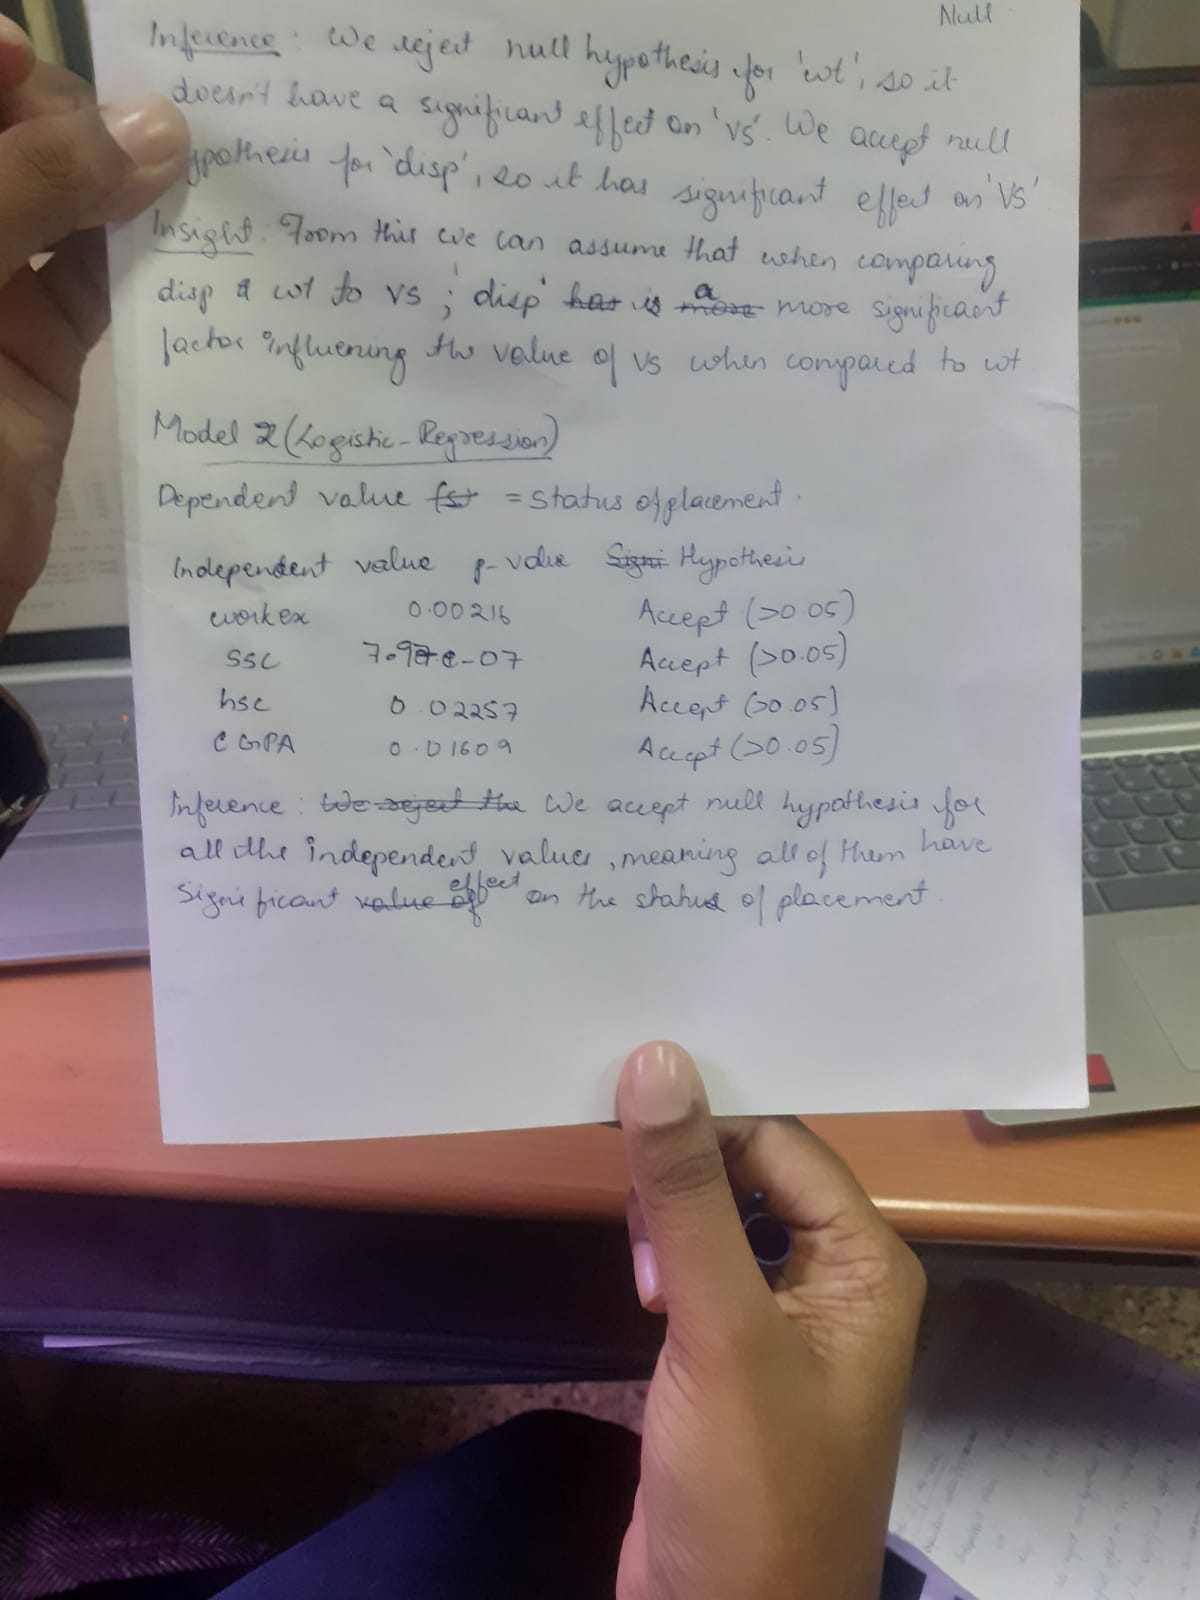 Null
Inference: We reject null hypothesis for 'wt', so it
doesn't have a significant effect on 'vs'. We accept null
ypothesis for 'disp', so it has significant effect on 'VS'
Insight: From this we can assume that when comparing
disp & wt to vs ; disp' has is a more more significant
factor influening the value of vs when compared to wt
Model 2 (Logistic-Regression)
Dependent value fst = Status of placement.
Independent value p-value Signi Hypothesis
workex 0.00216 Accept (>0.05)
SSC e-07 Accept (>0.05)
hsc 0.02257 Accept (>0.05)
CGPA 0.01609 Accept (>0.05)
Inference: We reject the We accept null hypothesis for
all the independent values, meaning all of them have
Significant value of effect on the status of placement.